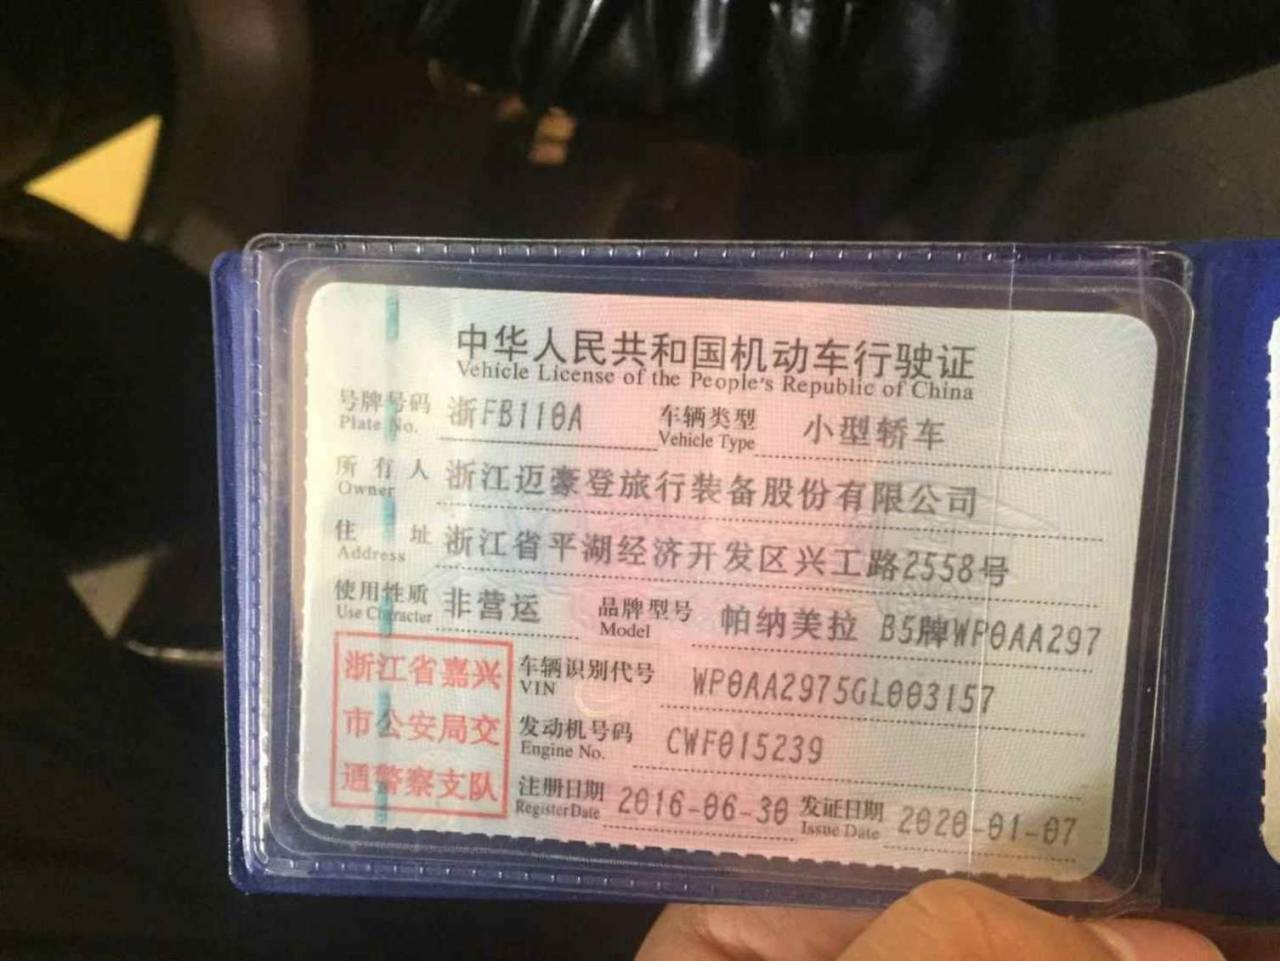 中华人民共和国机动车行驶证
Vehicle License of the People's Republic of China
号牌号码 浙FB110A 车辆类型 小型轿车
Plate No. Vehicle Type
所有人 浙江迈豪登旅行装备股份有限公司
Owner
住址 浙江省平湖经济开发区兴工路2558号
Address
使用性质 非营运 品牌型号 帕纳美拉 B5牌WP0AA297
Use Character Model
浙江省嘉兴
市公安局交
通警察支队
车辆识别代号 WP0AA2975GL003157
VIN
发动机号码 CWF015239
Engine No.
注册日期 2016-06-30 发证日期 2020-01-07
Register Date Issue Date